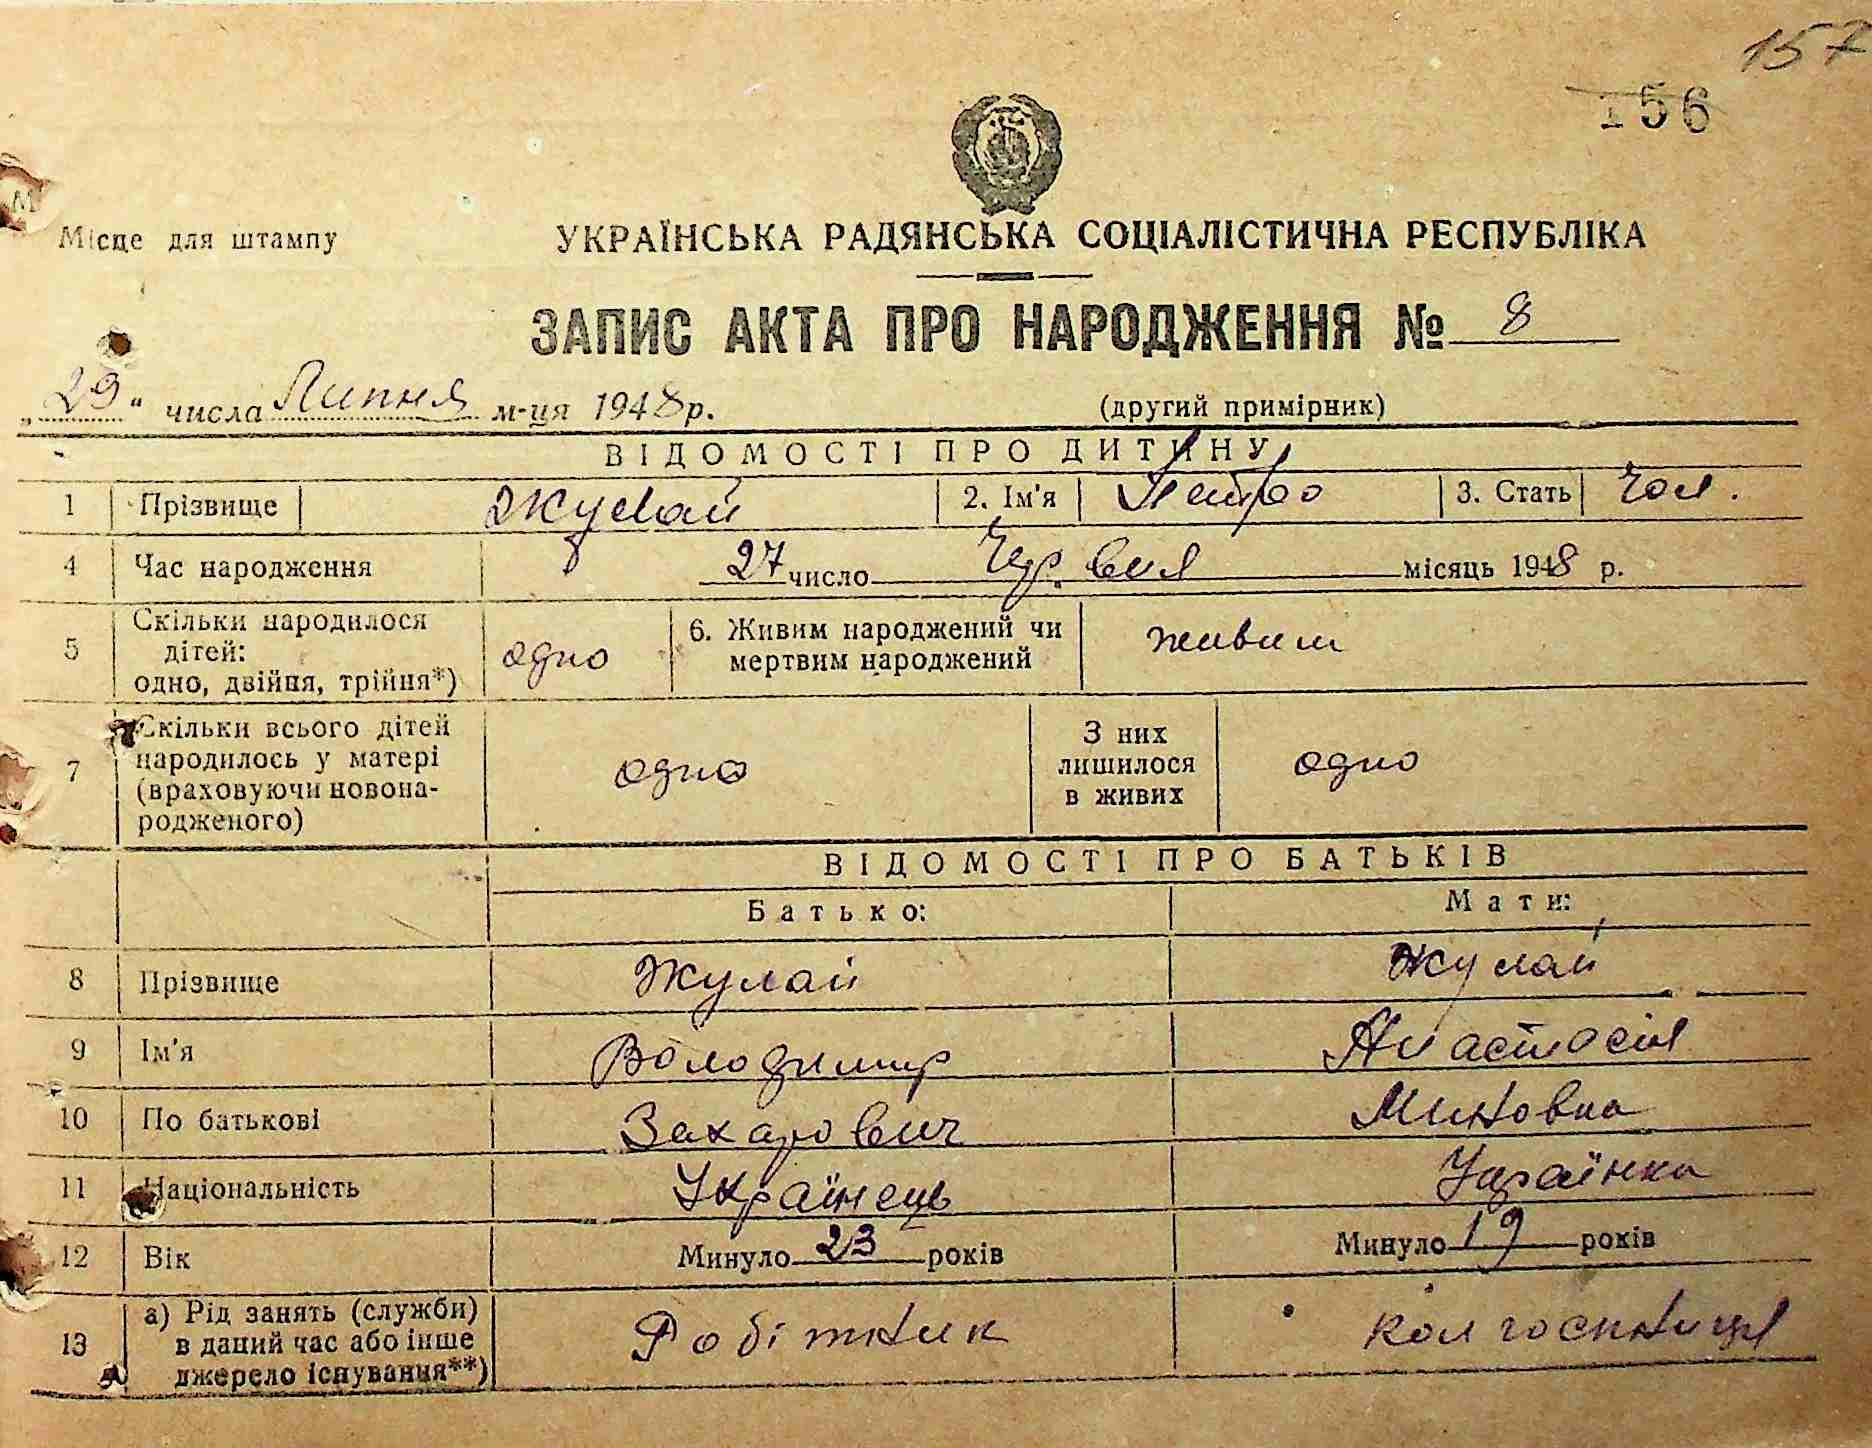 157
156
Місце для штампу
УКРАЇНСЬКА РАДЯНСЬКА СОЦІАЛІСТИЧНА РЕСПУБЛІКА
ЗАПИС АКТА ПРО НАРОДЖЕННЯ № 8
„29“ числа Липня м-ця 1948 р. (другий примірник)
ВІДОМОСТІ ПРО ДИТИНУ
1 Прізвище Жулай 2. Ім'я Петро 3. Стать Чол.
4 Час народження 27 число Червня місяць 1948 р.
5 Скільки народилося дітей: одно, двійня, трійня*) одно 6. Живим народжений чи мертвим народжений живим
7 Скільки всього дітей народилось у матері (враховуючи новонародженого) одно З них лишилося в живих одно
ВІДОМОСТІ ПРО БАТЬКІВ
Батько: Мати:
8 Прізвище Жулай Жулай
9 Ім'я Володимир Анастасія
10 По батькові Захарович Миновна
11 Національність Українець Українка
12 Вік Минуло 23 років Минуло 19 років
13 а) Рід занять (служби) в даний час або інше джерело існування**) Робітник колгоспниця